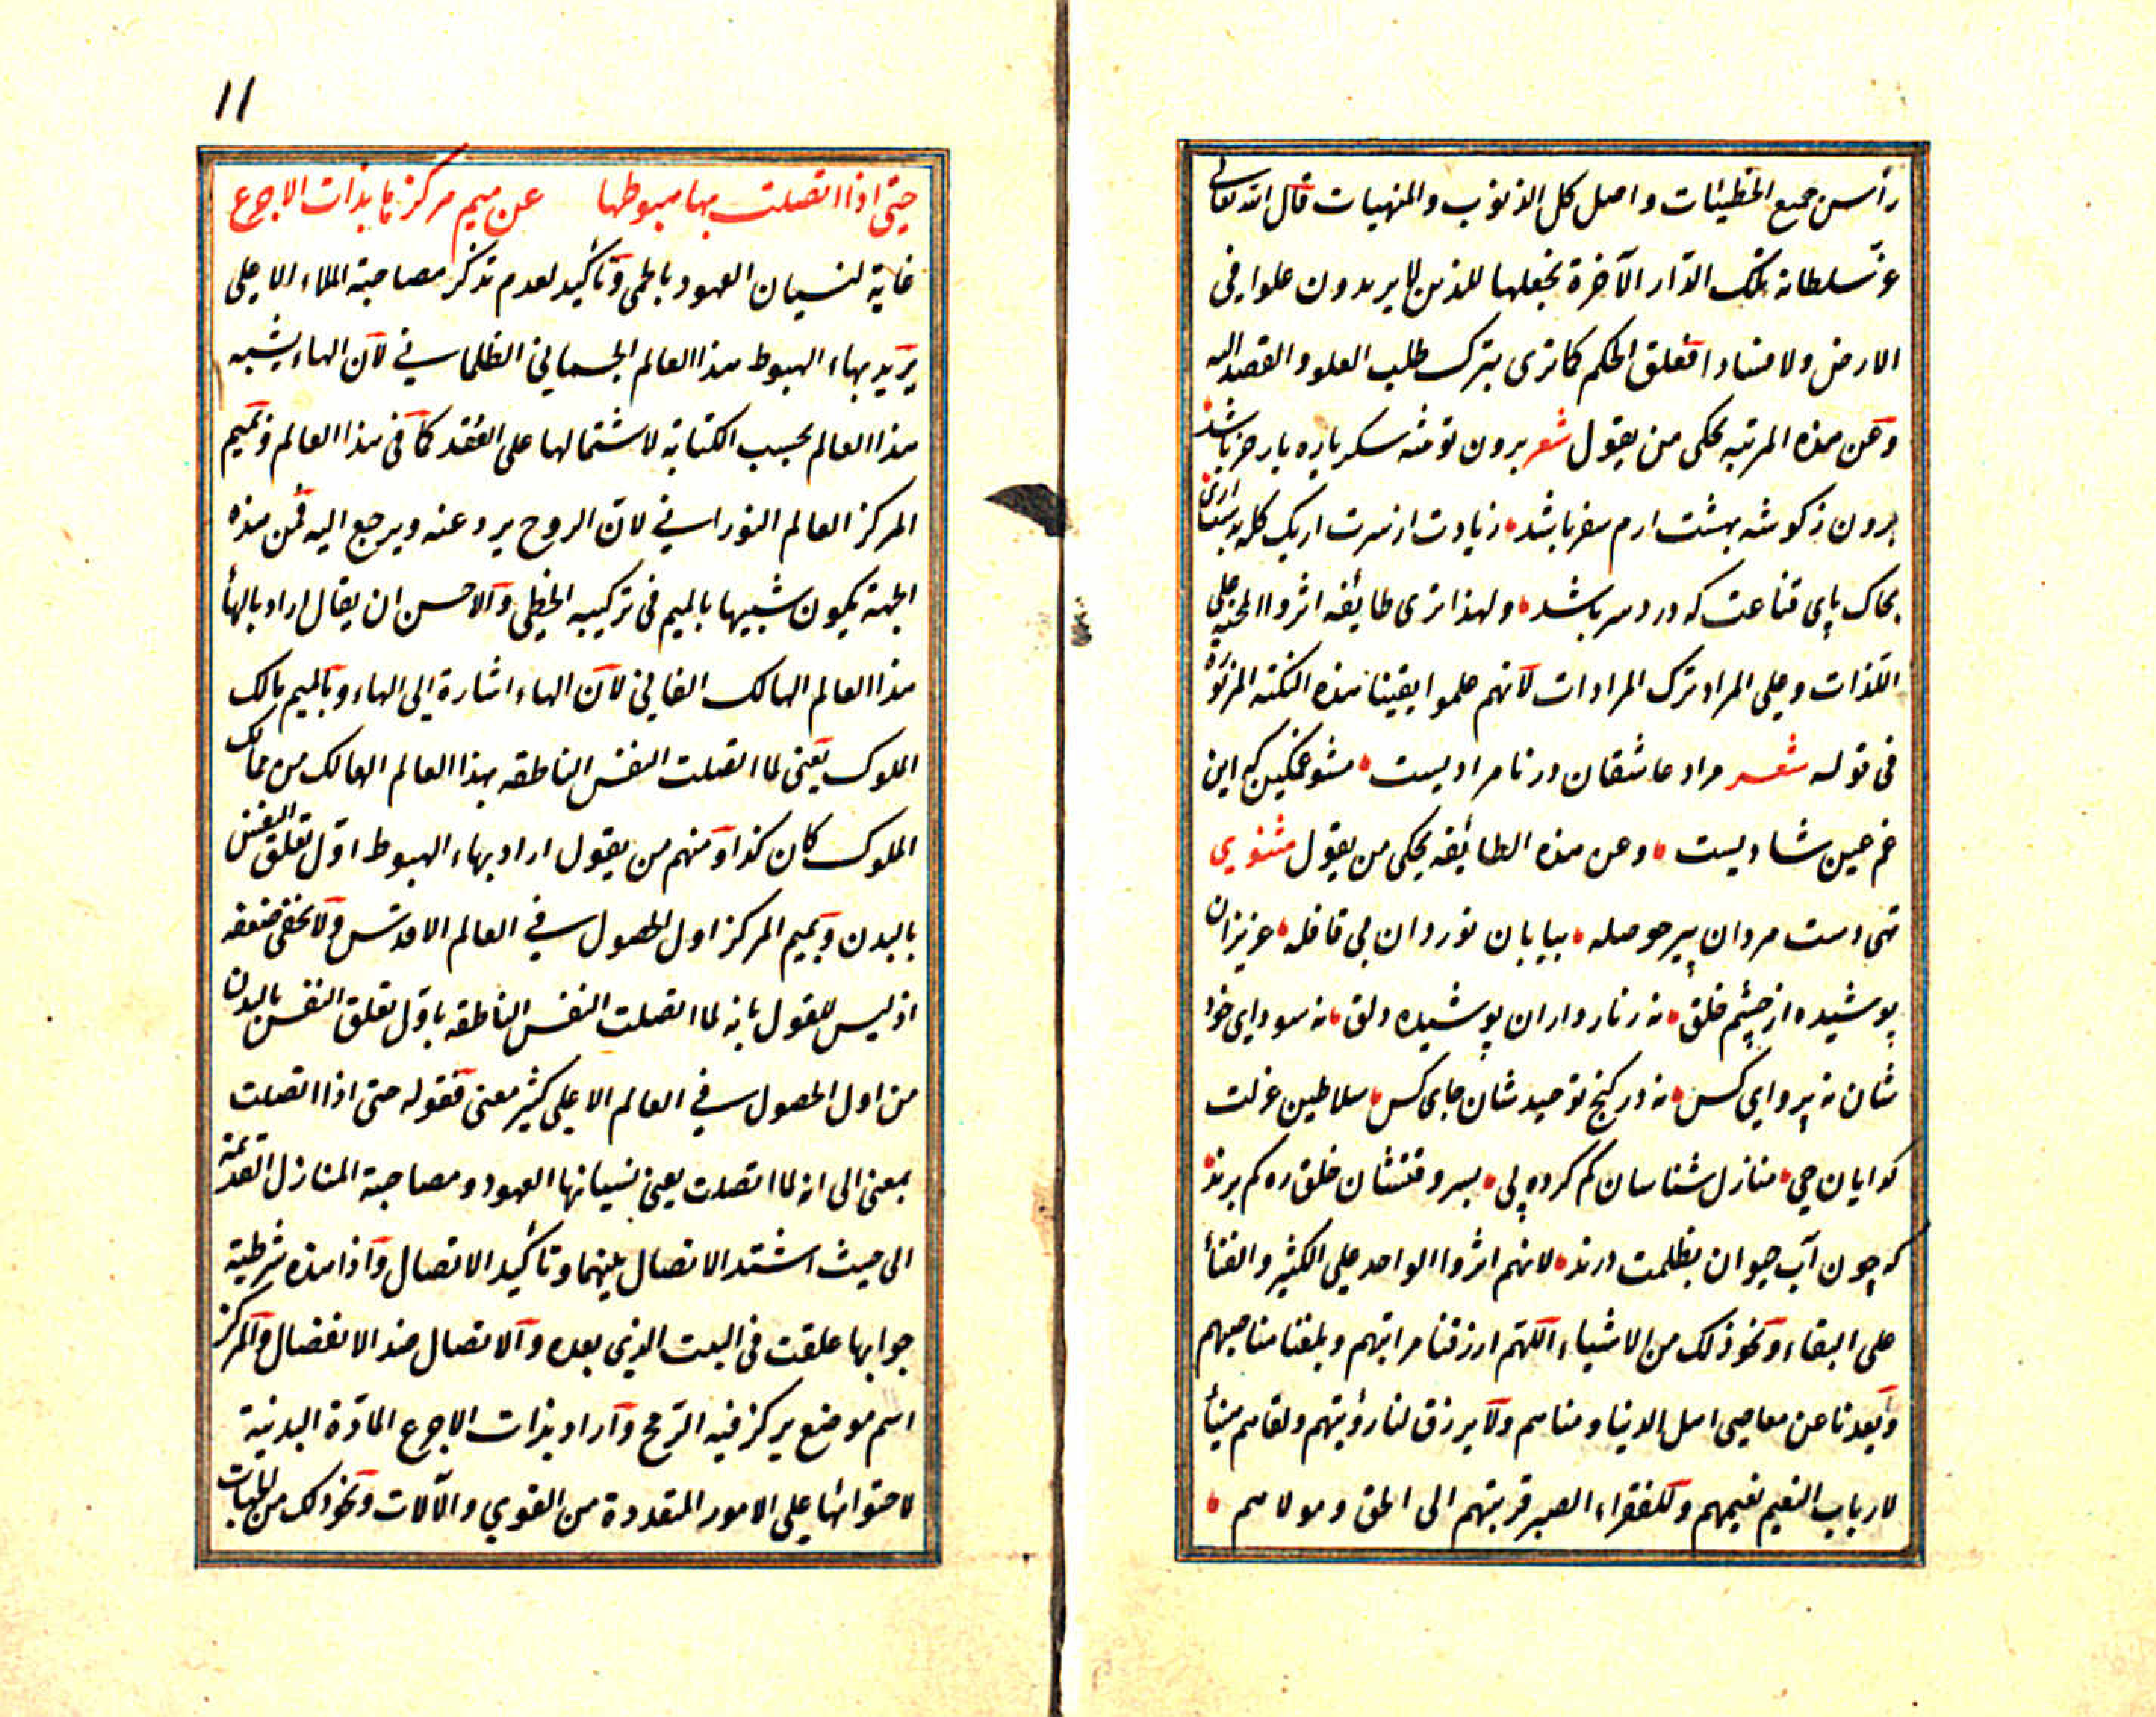 رأس جميع الخطيئات واصل كل الذنوب والمنهيات قال الله تعالى
عز سلطانه تلك الدّار الآخرة نجعلها للذين لا يريدون علوا فى
الارض ولا فسادا فعلق الحكم كما ترى بترك طلب العلو والقصد اليه
وعن هذه المرتبه يحكى من يقول شعر برون توشه سكر باره بار خر باشد
برون ز كوشه بهشت ارم سفر باشد زيادت از سرت اريك كله بدست ارى
بخاك پاى قناعت كه درد سر باشد ولهذا ترى طايفه اثروا المحنه على
اللذات وعلى المراد ترك المرادات لانهم علموا يقينا هذه النكته المزبوره
فى قوله شعر مراد عاشقان در نامراديست مشو غمكين كه اين
غم عين شاديست وعن هذه الطائفه يحكى من يقول مثنوي
تهى دست مردان پير حوصله بيابان نوردان بى قافله عزيزان
پوشيده از چشم خلق نه زنار داران پوشيده دلق نه سوداى خود
شان نه پرواى كس نه در كنج توحيد شان جاى كس سلاطين عزلت
كدايان حى منازل شناسان كم كرده پى بسر وقتشان خلق ره كم برند
كه چون آب حيوان بظلمت درند لانهم اثروا الواحد على الكثير والفنأ
على البقاء ونحو ذلك من الاشياء اللهم ارزقنا مراتبهم وبلغنا مناصبهم
وابعدنا عن معاصى اهل الدنيا ومناهم ولا يرزق لنا رؤيتهم ولقاهم
لارباب النعيم نعيمهم وللفقراء الصبر قربتهم الى الحق ومولاهم
11
حتى اذا اتصلت بهاء هبوطها عن ميم مركزها بذات الاجرع
غاية لنسيان العهود بالحمى وتأكيد لعدم تذكر مصاحبة الملاء الاعلى
يريد بهاء الهبوط هذا العالم الجسماني الظلماني لان الهاء يشبه
هذا العالم بحسب الكتابة لاشتمالها على العقد كما في هذا العالم وبميم
المركز العالم النوراني لان الروح يرد عنه ويرجع اليه فمن هذه
الجهة يكون شبيها بالميم فى تركيبه الخطى والاحسن ان يقال اراد بالهأ
هذا العالم الهالك الفاني لان الهاء اشارة الى الهاء وبالميم مالك
الملوك يعنى لما اتصلت النفس الناطقه بهذا العالم الهالك من ممالك
الملوك كان كذا ومنهم من يقول اراد بهاء الهبوط اوّل تعلق النفس
بالبدن وبميم المركز اول الحصول في العالم الاقدس ولا يخفى ضعفه
اذ ليس للقول بانه لما اتصلت النفس الناطقه باوّل تعلق النفس بالبدن
من اول الحصول في العالم الاعلى كثير معنى فقوله حتى اذا اتصلت
بمعنى الى انه لما اتصلت يعنى نسيانها العهود ومصاحبة المنازل القديمة
الى حيث اشتد الاتصال بينهما وتأكيد الاتصال واذا هذه شرطية
جوابها علقت فى البيت الذى بعده والاتصال ضد الانفصال والمركز
اسم موضع يركز فيه الرّمح واراد بذات الاجرع المادّة البدنية
لاحتوائها على الامور المتعددة من القوي والآلات ونحو ذلك من